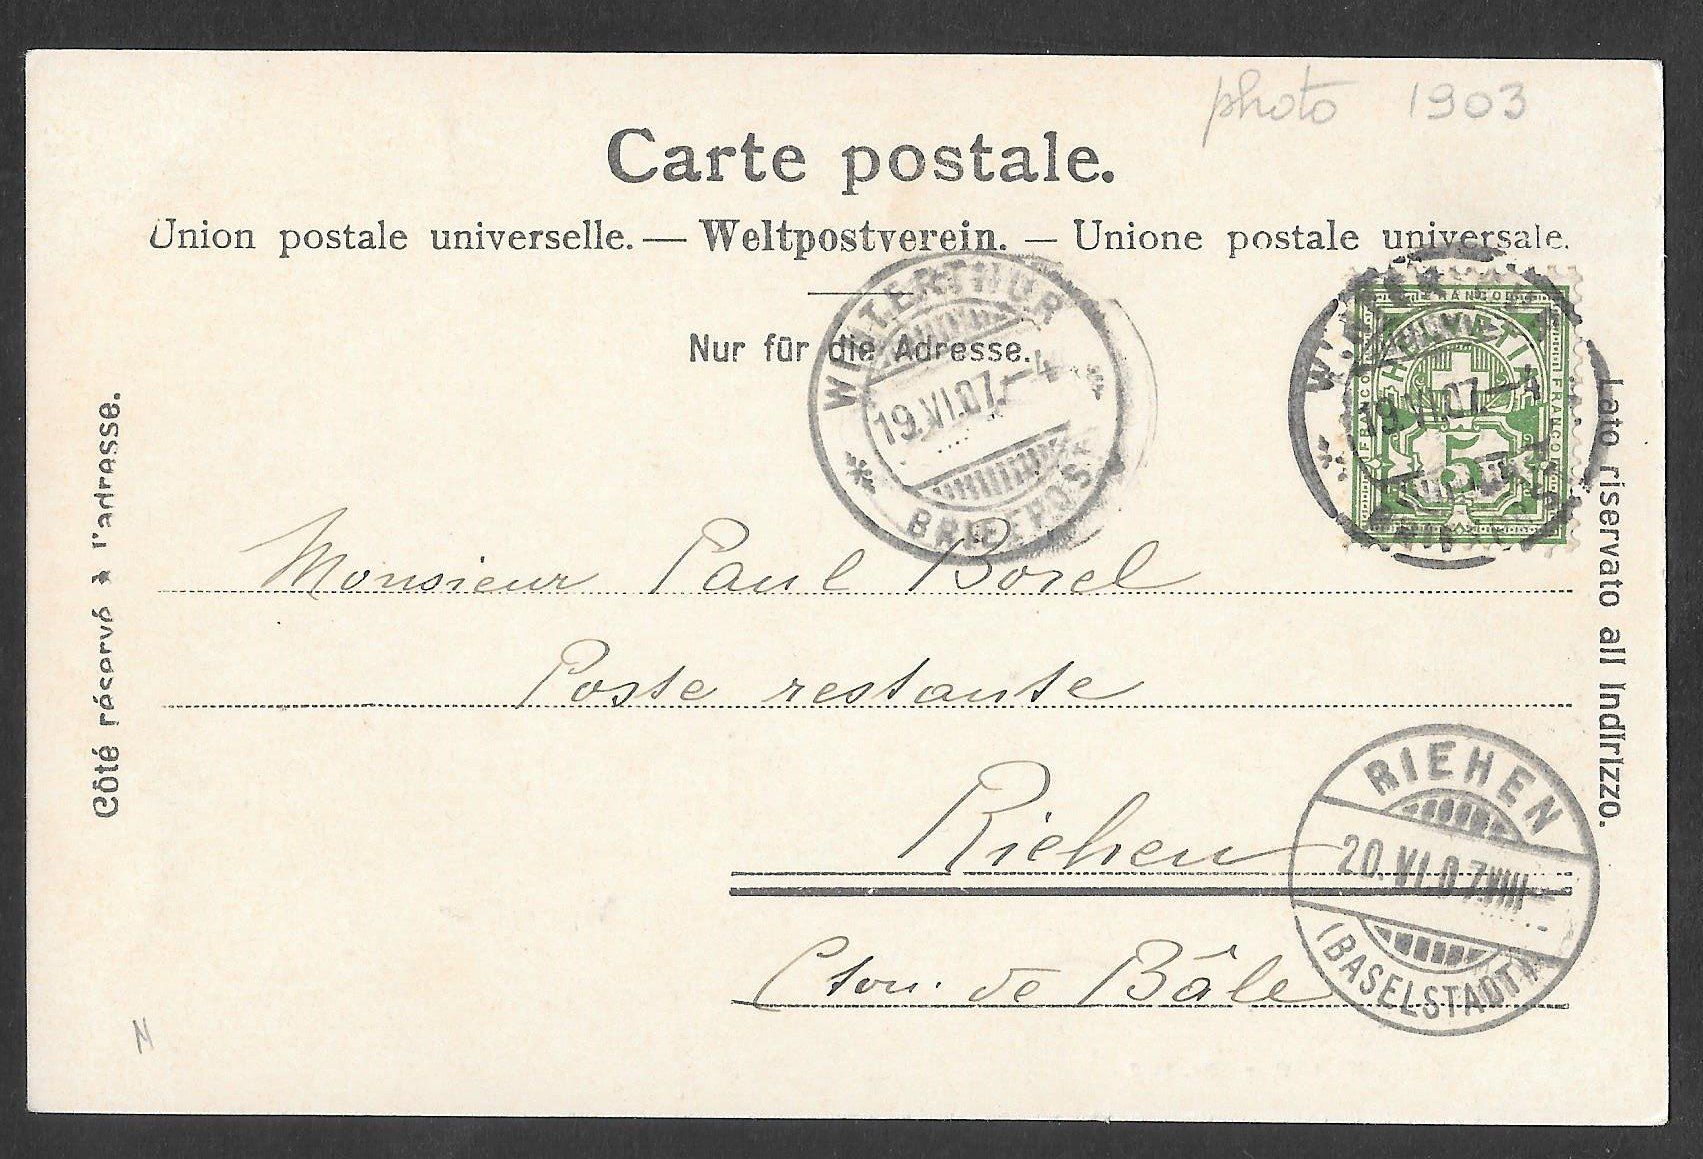 photo 1903
Carte postale.
Union postale universelle. — Weltpostverein. — Unione postale universale.
Nur für die Adresse.
WINTERTHUR
19.VI.07.–4
BRIEFPOST
WINTERTHUR
19.VI.07–4
FRANCO
FRANCO
FRANCO
HELVETIA
5
Côté réservé à l'adresse.
Lato riservato all Indirizzo.
Monsieur Paul Borel
Poste restante
Riehen
Cton. de Bâle
RIEHEN
20.VI.07.VIII–
(BASELSTADT)
N